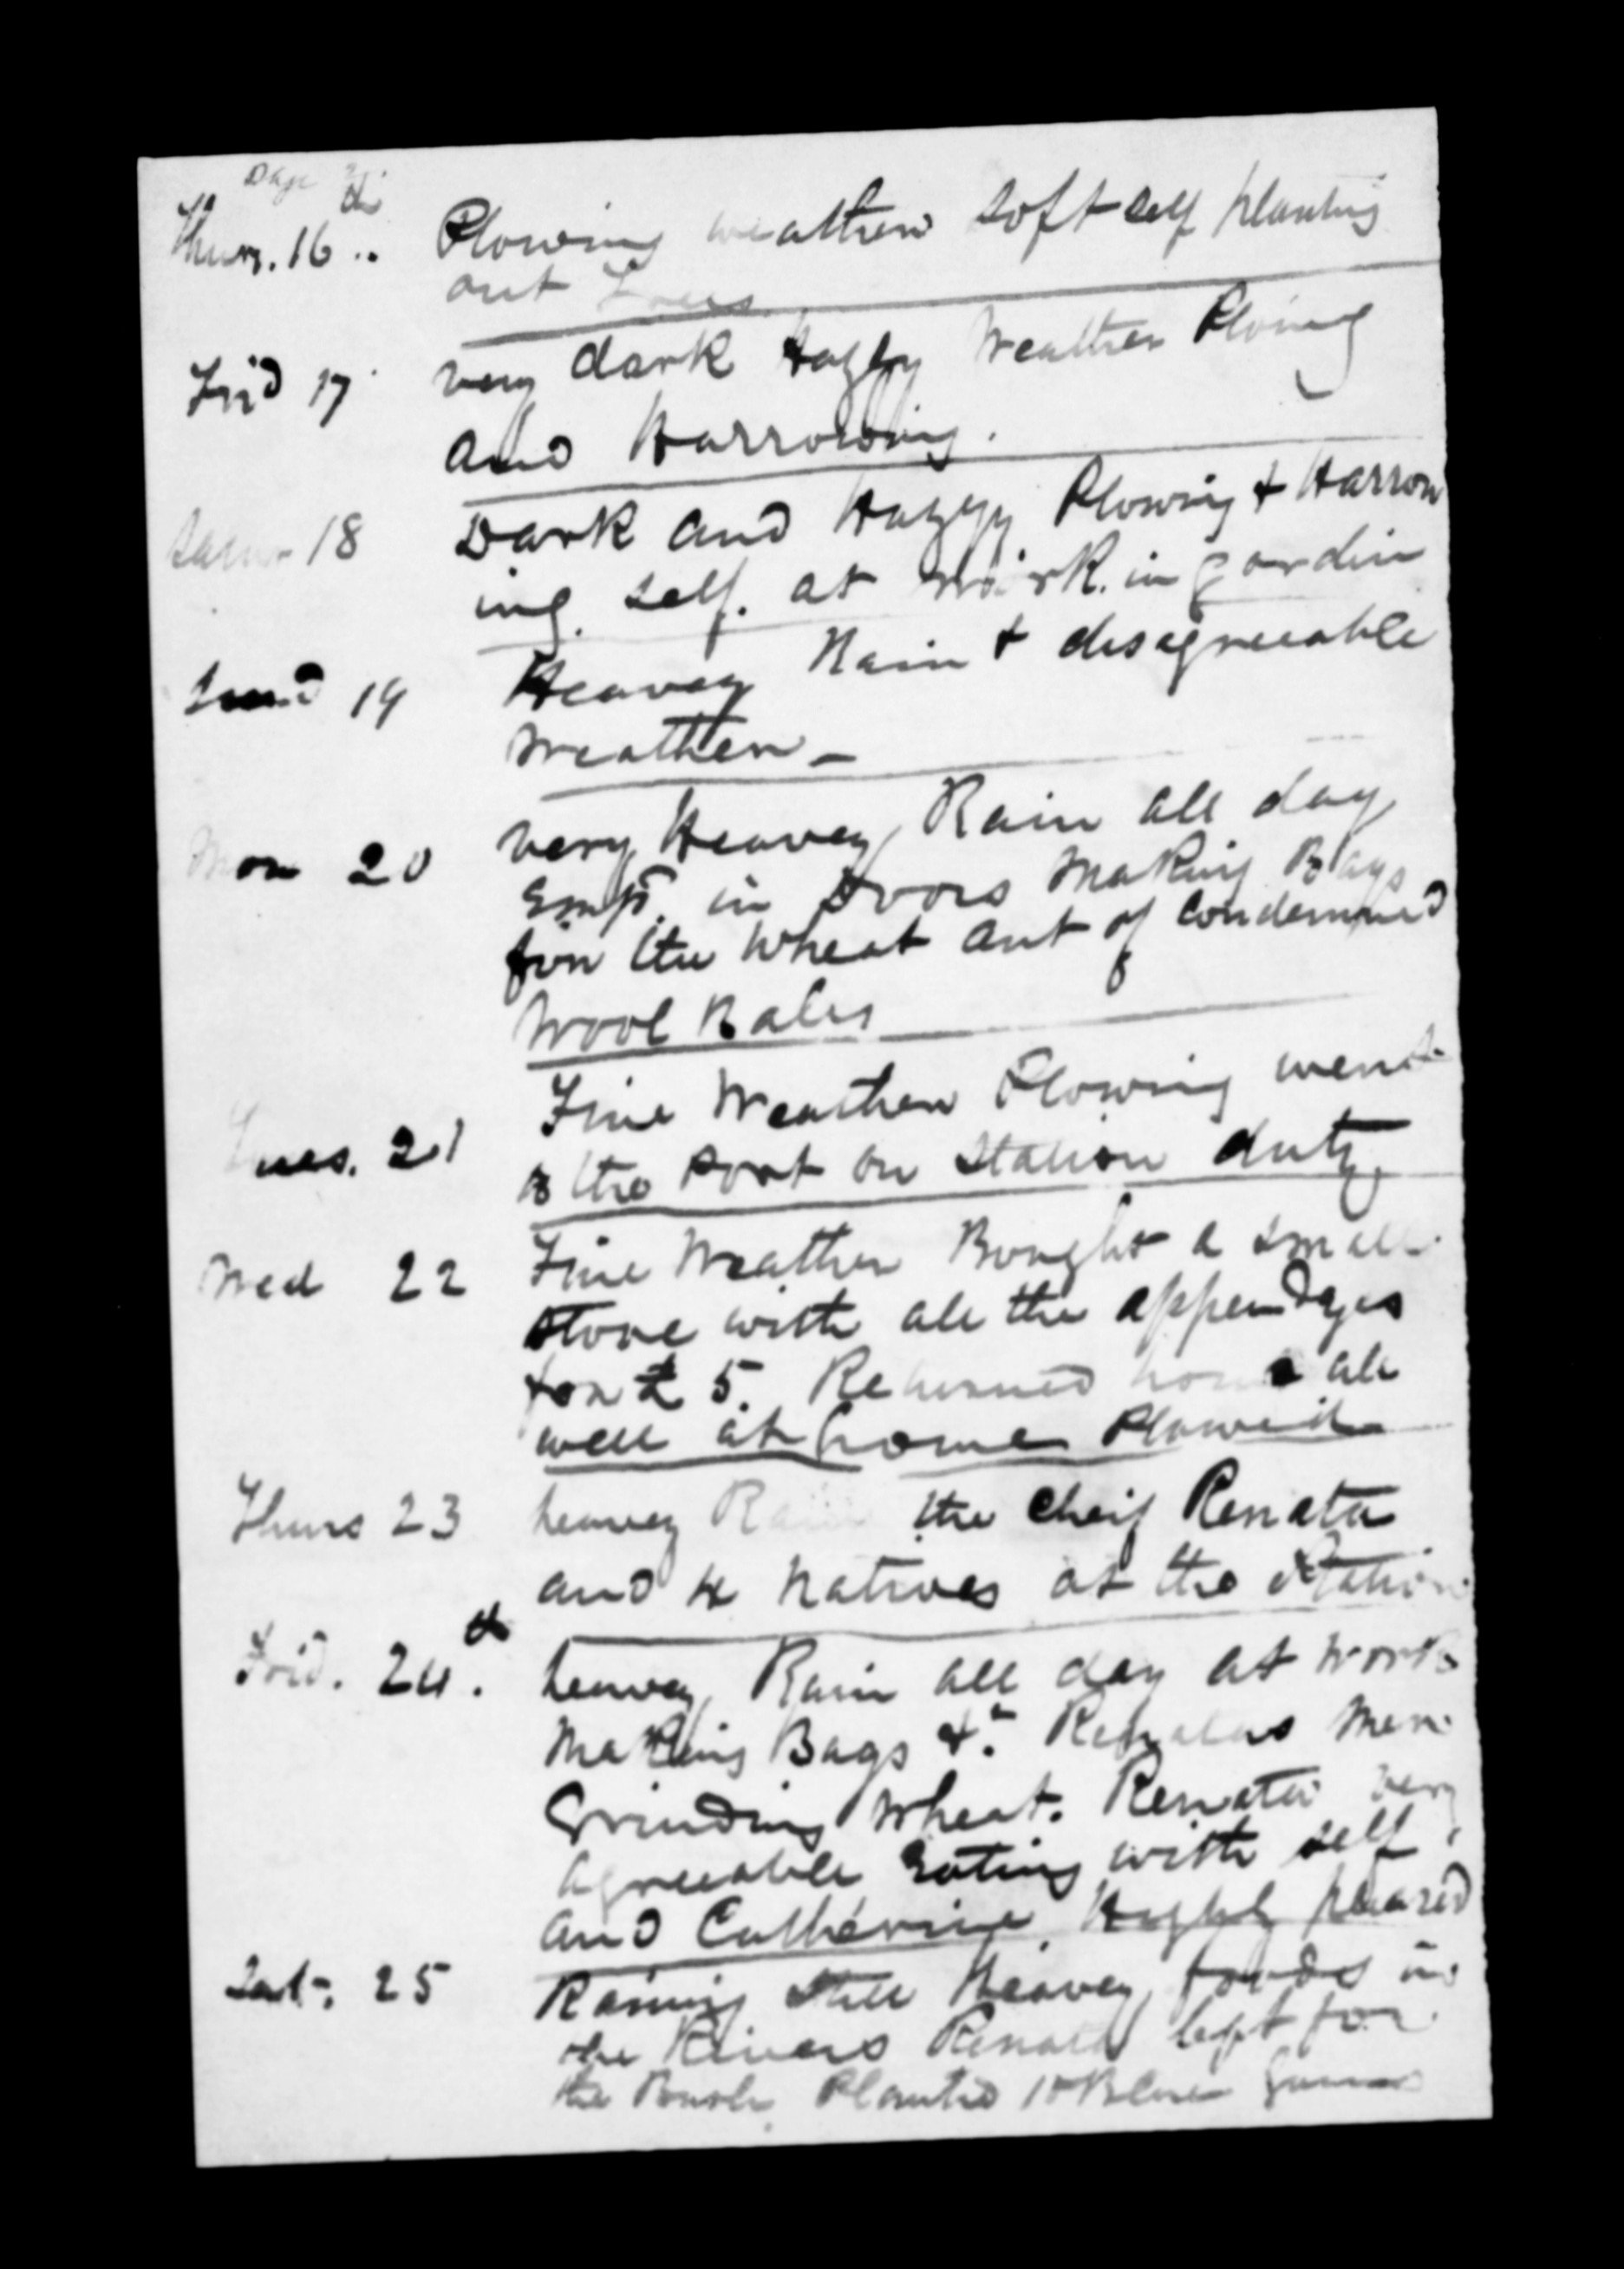 Page
Thurs. 16th Plowing weather soft self planting
out Trees
Frid 17 very dark Hazzy Weather Ploing
and Harrowing.
Satur 18 Dark and Hazyy Plowing + Harrow
ing self. at work. in gardin
Sund 19 Heavey Rain + disagreeable
Weather _
Mon 20 very Heavey Rain all day
Empd. in Doors Making Bags
for the Wheat out of Condemned
Wool Bales
Tues. 21 Fine Weather Plowing went
to the Port on Station duty
Wed 22 Fine Weather Bought a small
stove with all the appendages
for £ 5. Returned home all
well at home Plowed
Thurs 23 heavey Rain the cheif Renata
and 4 Natives at the Station
Frid. 24th. heavey Rain all day at work
Making Bags &c. Renatas men
Grinding Wheat. Renata very
agreeable Eating with self
and Catherine Highly pleased
Sat. 25 Raining still Heavey floods in
the Rivers Renata left for
the Bush. Planted Blue Gums